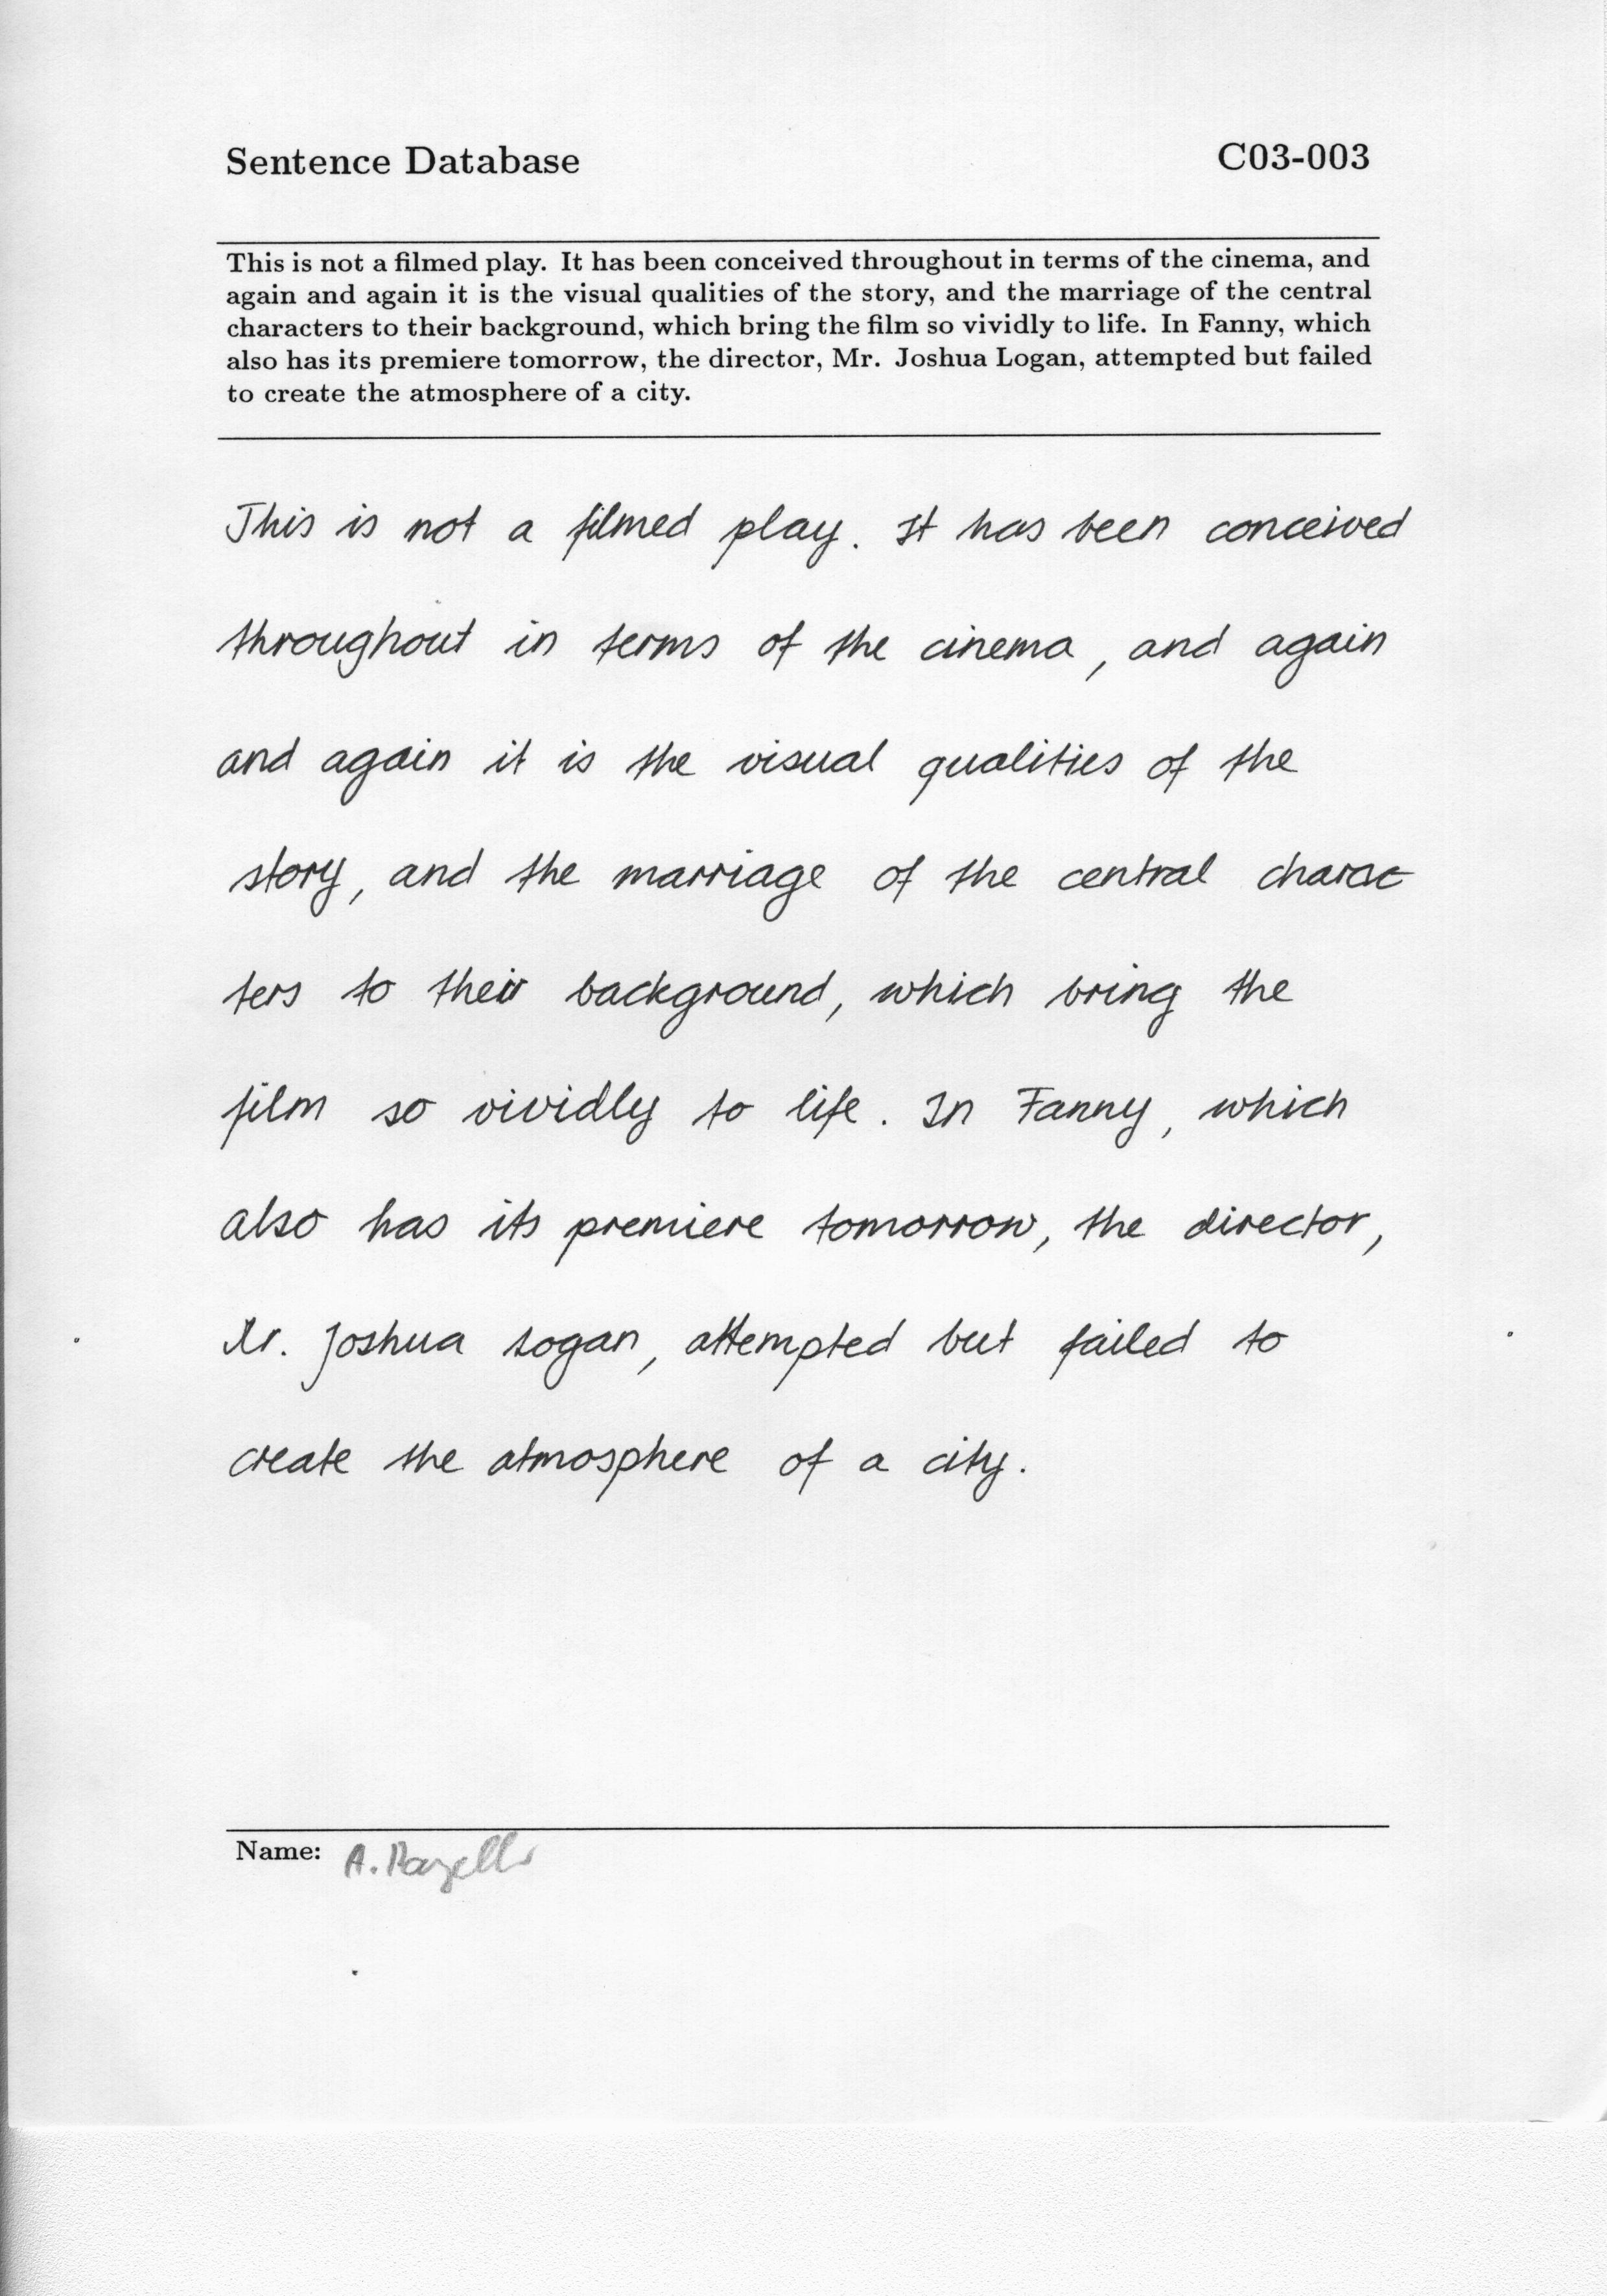 Sentence Database C03-003
This is not a filmed play. It has been conceived throughout in terms of the cinema, and
again and again it is the visual qualities of the story, and the marriage of the central
characters to their background, which bring the film so vividly to life. In Fanny, which
also has its premiere tomorrow, the director, Mr. Joshua Logan, attempted but failed
to create the atmosphere of a city.
This is not a filmed play. It has been conceived
throughout in terms of the cinema, and again
and again it is the visual qualities of the
story, and the marriage of the central charac
ters to their background, which bring the
film so vividly to life. In Fanny, which
also has its premiere tomorrow, the director,
Mr. Joshua Logan, attempted but failed to
create the atmosphere of a city.
Name: A.